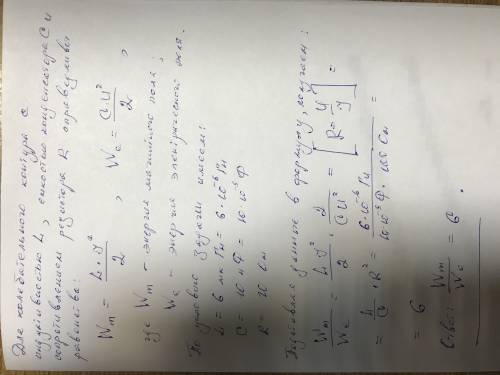 Для колебательного контура с
индуктивностью L, ёмкостью конденсатора C и
сопротивлением резистора R справедливы
равенства:
Wm = L·I²/2 , Wc = C·U²/2 ,
где Wm – энергия магнитного поля;
Wc – энергия электрического поля.
По условию задачи имеем:
L = 6 мк Гн = 6·10⁻⁶ Гн
C = 10 нФ = 10·10⁻⁹ Ф
R = 10 Ом
Подставляя данные в формулу, получаем:
Wm/Wc = L·I²/2 · 2/CU² = [R = U/I] =
= L/C·R² = 6·10⁻⁶ Гн / 10·10⁻⁹ Ф · 100 Ом =
= 6
Ответ: Wm/Wc = 6 .